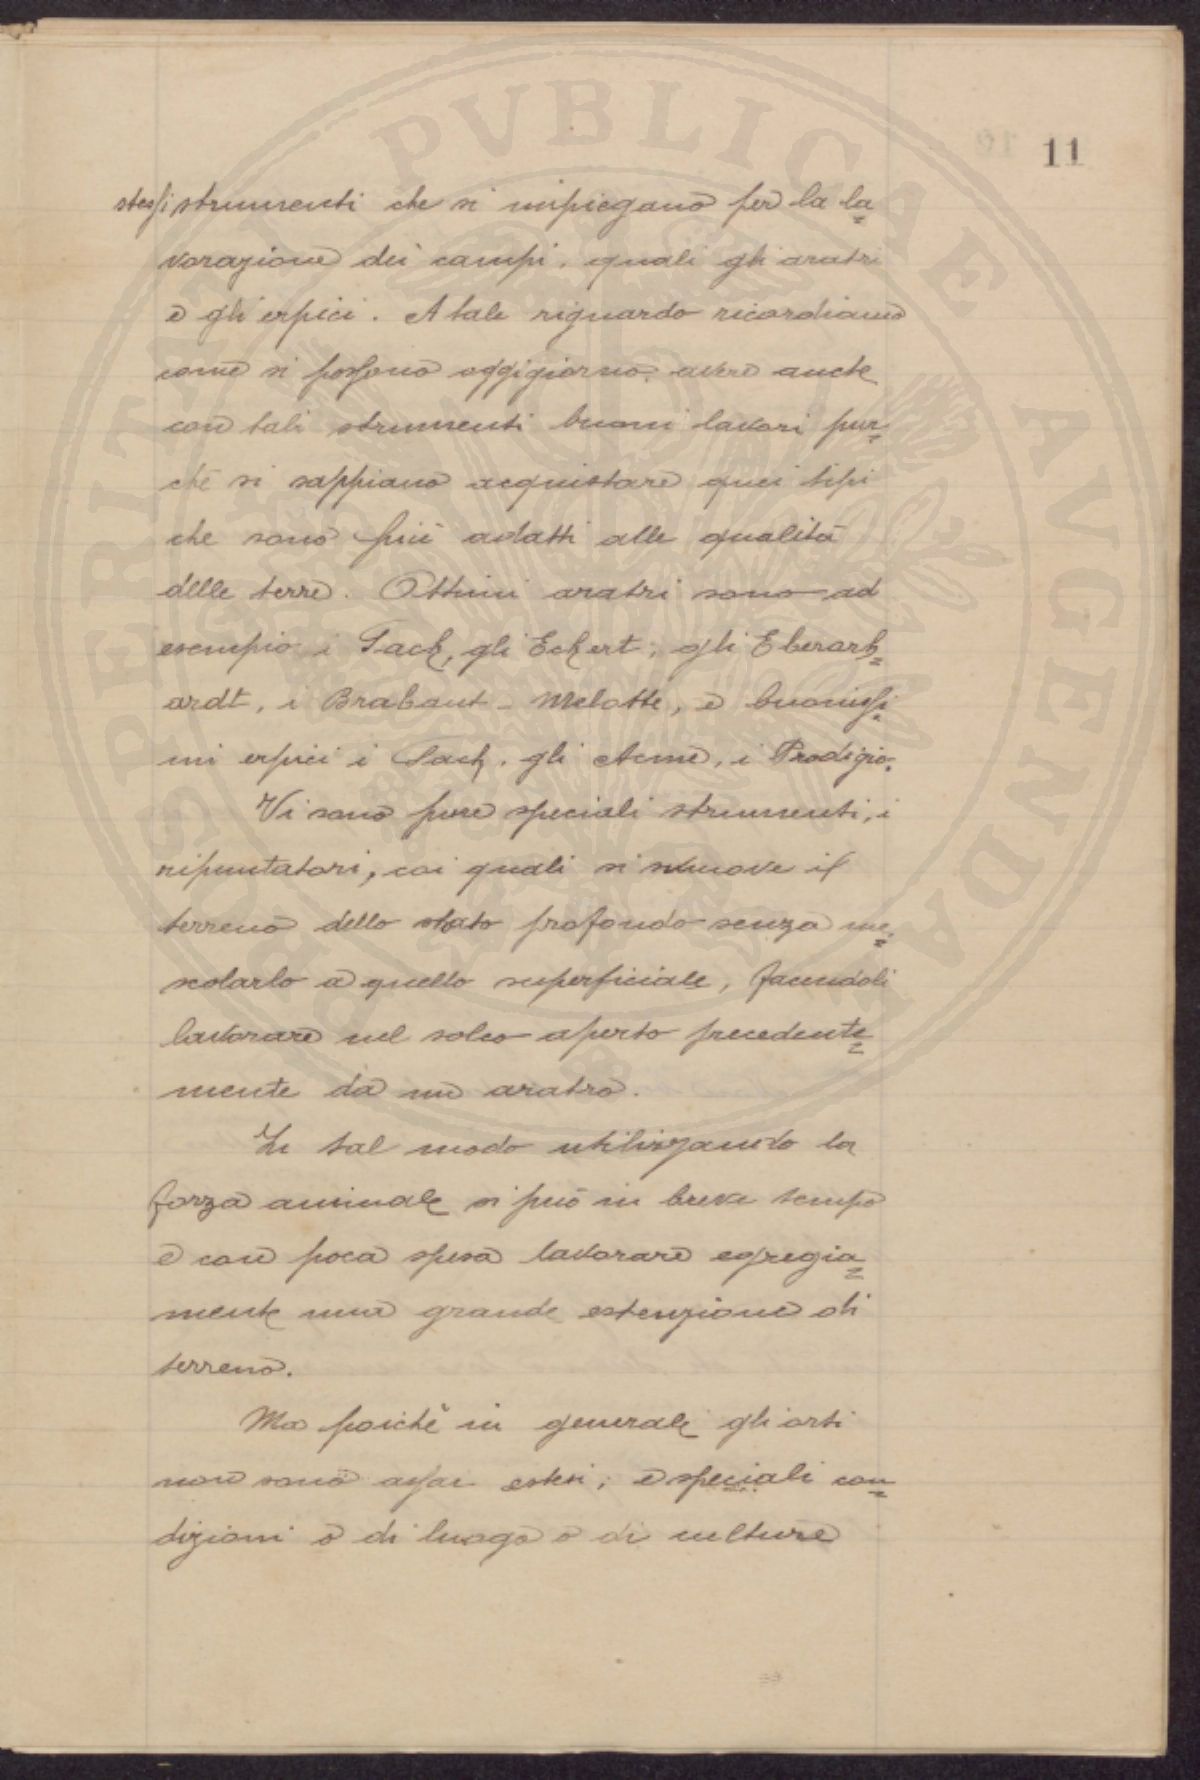 11
stessi strumenti che si impiegano per la la=
vorazione dei campi, quali gli aratri
e gli erpici. A tale riguardo ricordiamo
come si possono oggigiorno avere anche
con tali strumenti buoni lavori pur=
chè si sappiano acquistare quei tipi
che sono più adatti alle qualità
delle terre. Ottimi aratri sono ad
esempio i Sack, gli Eckert, gli Eberarh=
ardt, i Brabant - Melotte, e buonissi=
mi erpici i Sack, gli Acme, i Prodigio.
Vi sono pure speciali strumenti, i
ripuntatori, coi quali si smuove il
terreno dello stato profondo senza me=
scolarlo a quello superficiale, facendoli
lavorare nel solco aperto precedente=
mente da un aratro.
In tal modo utilizzando la
forza animale si può in breve tempo
e con poca spesa lavorare egregia=
mente una grande estenzione di
terreno.
Ma poichè in generale gli orti
non sono assai estesi, e speciali con=
dizioni o di luogo o di culture
PROSPERITATI PVBLICAE AVGENDAE